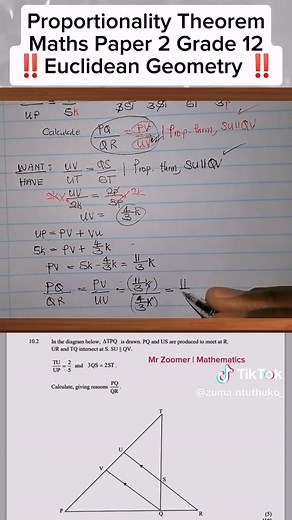 Proportionality Theorem
Maths Paper 2 Grade 12
‼️ Euclidean Geometry ‼️
UP 5k 3ST 3ST ST 3p
Calculate PQ/QR = PV/UV | Prop. thrm, SU||QV
WANT: UV/UT = QS/ST | Prop. thrm, SU||QV
HAVE
2k × UV/2k = 2p/3p × 2k
UV = 4/3 k
UP = PV + VU
5k = PV + 4/3 k
PV = 5k - 4/3 k = 11/3 k
PQ/QR = PV/UV = (11/3 k)/(4/3 k) = 11
10.2 In the diagram below, ΔTPQ is drawn. PQ and US are produced to meet at R.
UR and TQ intersect at S. SU || QV.
TU/UP = 2/5 and 3QS = 2ST.
Mr Zoomer | Mathematics
Calculate, giving reasons PQ/QR
TikTok
@zuma.ntuthuko_
T
U
V
S
P
Q
R
(5)